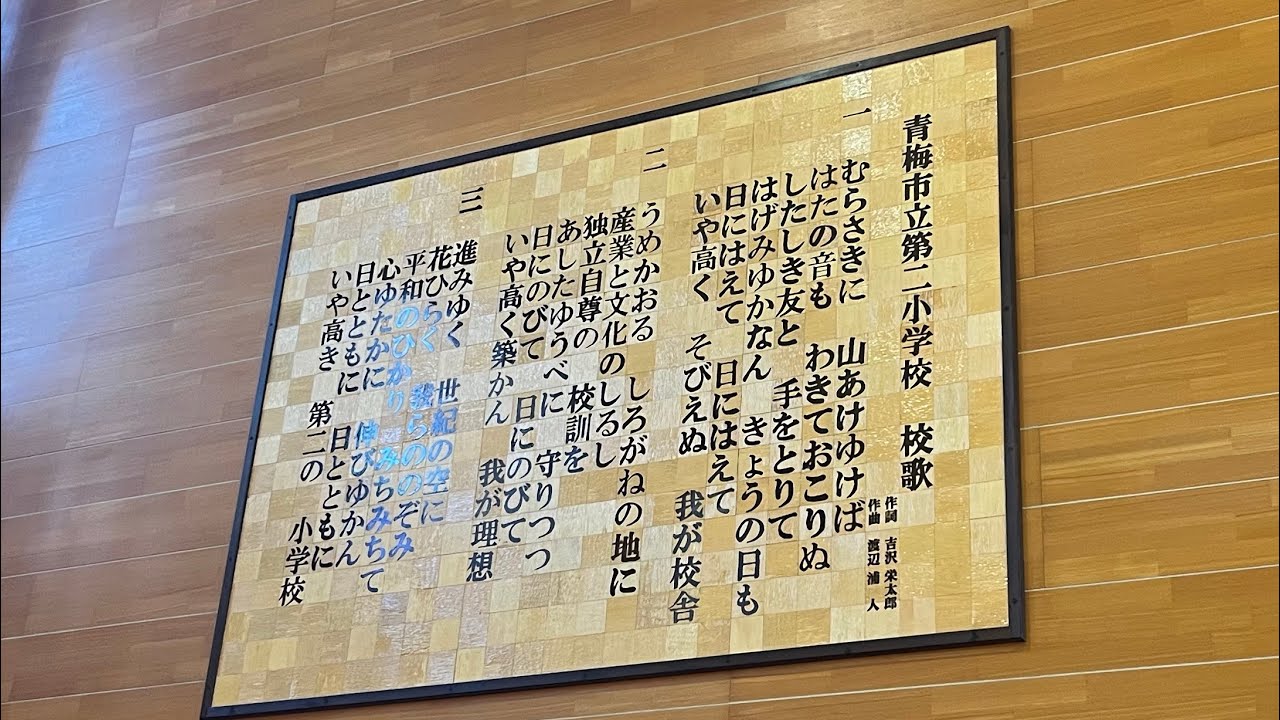 青梅市立第二小学校　校歌
作詞　吉沢　栄太郎
作曲　渡辺　浦人
一
むらさきに　山あけゆけば
はたの音も　わきておこりぬ
したしき友と　手をとりて
はげみゆかなん　きょうの日も
日にはえて　日にはえて
いや高く　そびえぬ　我が校舎
二
うめかおる　しろがねの地に
産業と文化の　しるし
独立自尊の　校訓を
あしたゆうべに　守りつつ
日にのびて　日にのびて
いや高く築かん　我が理想
三
進みゆく　世紀の空に
花ひらく　我らののぞみ
平和のひかり　みちみちて
心ゆたかに　伸びゆかん
日とともに　日とともに
いや高き　第二の　小学校